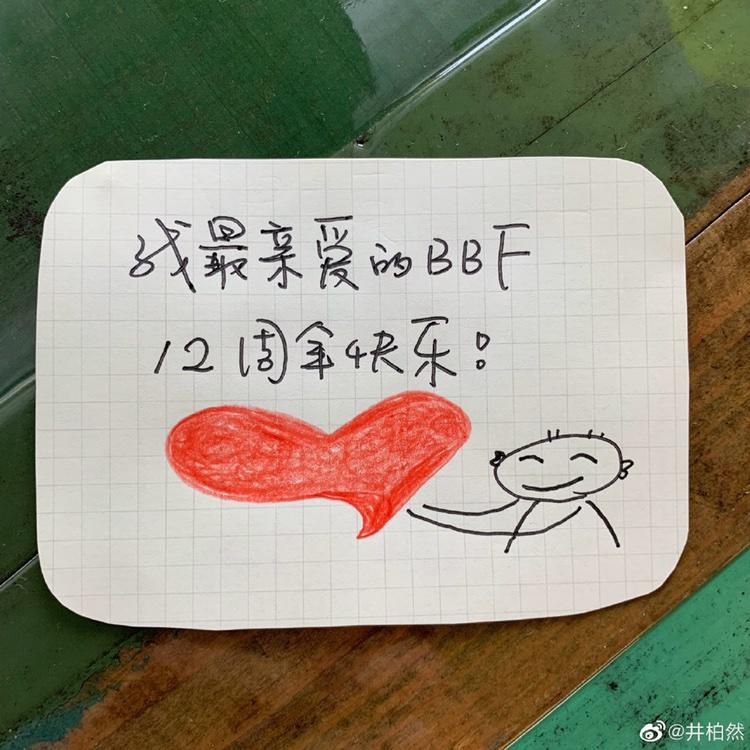 我最亲爱的BBF
12周年快乐：
@井柏然